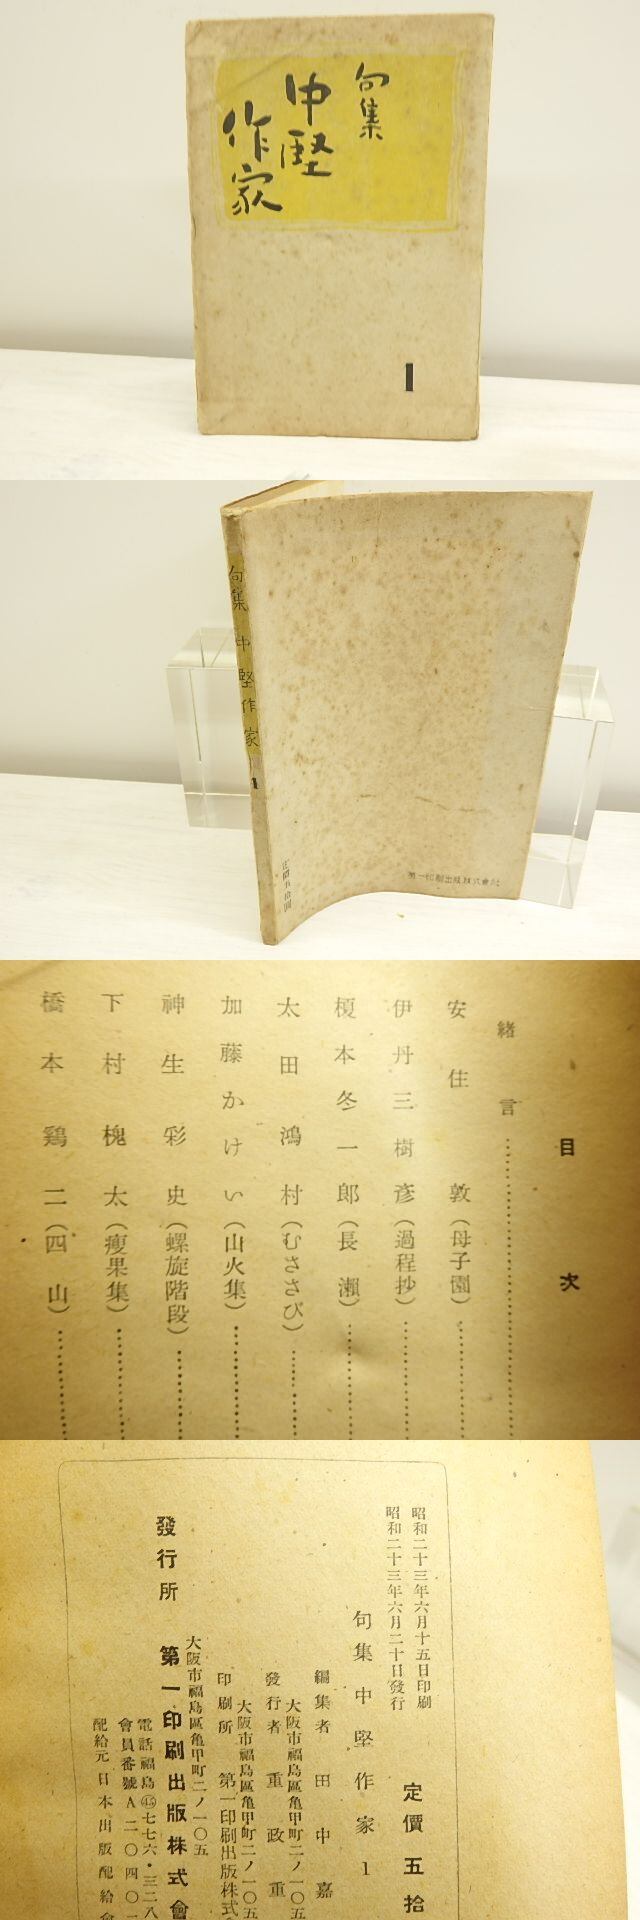 句集
中堅
作家
1
句集 中堅作家 1
定價五拾圓
第一印刷出版株式會社
目次
緒言
安住敦(母子園)
伊丹三樹彦(過程抄)
榎本冬一郎(長瀬)
太田鴻村(むささび)
加藤かけい(山火集)
神生彩史(螺旋階段)
下村槐太(瘦果集)
橋本鶏二(四山)
昭和二十三年六月十五日印刷
昭和二十三年六月二十日發行
定價五拾
句集中堅作家1
編集者 田中嘉
大阪市福島區亀甲町二ノ一〇五
發行者 重政重
大阪市福島區亀甲町二ノ一〇五
印刷所 第一印刷出版株式
大阪市福島區亀甲町二ノ一〇五
發行所 第一印刷出版株式會
電話福島㊺七七六・三二八
會員番號A二〇四〇
配給元日本出版配給